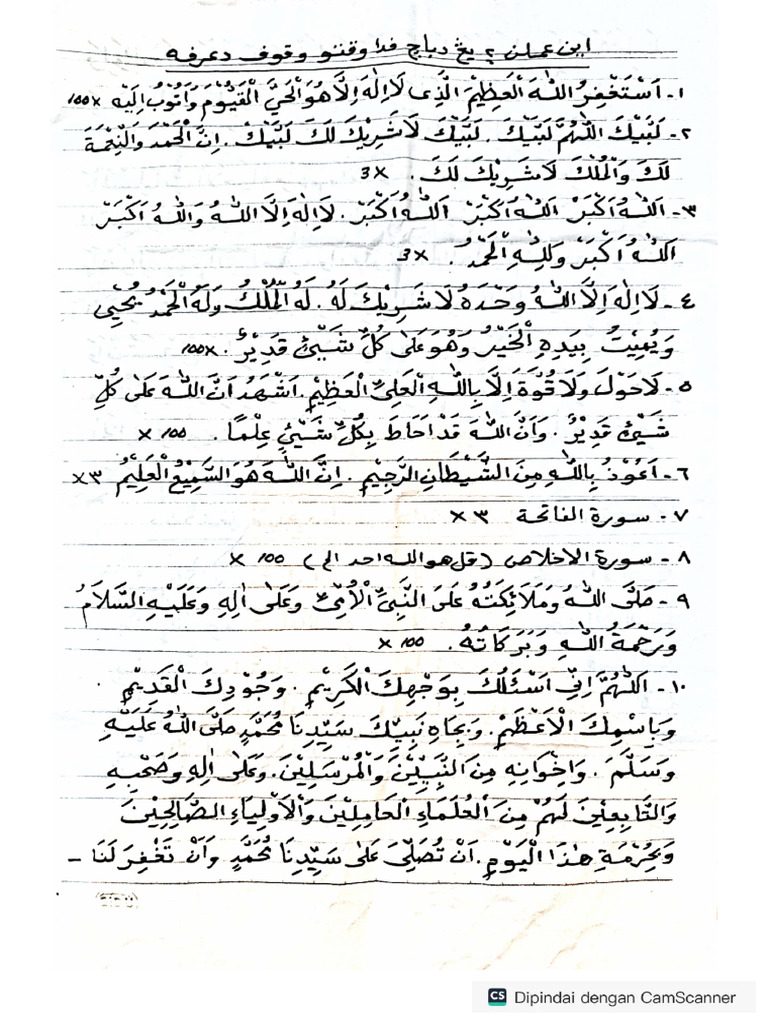 اين عملن ٢ يڠ دباچ فدا وقتو وقوف دعرفه
١- اَسْتَغْفِرُ اللهَ الْعَظِيْمَ الَّذِى لَا اِلٰهَ اِلَّا هُوَ الْحَيَّ الْقَيُّوْمَ وَاَتُوْبُ اِلَيْهِ 100x
٢- لَبَّيْكَ اللّٰهُمَّ لَبَّيْكَ . لَبَّيْكَ لَا شَرِيْكَ لَكَ لَبَّيْكَ . اِنَّ الْحَمْدَ وَالنِّعْمَةَ
لَكَ وَالْمُلْكَ لَا شَرِيْكَ لَكَ . 3x
٣- اَللهُ اَكْبَرْ اَللهُ اَكْبَرْ اَللهُ اَكْبَرْ . لَا اِلٰهَ اِلَّا اللهُ وَاللهُ اَكْبَرْ
اَللهُ اَكْبَرْ وَلِلّٰهِ الْحَمْدُ . 3x
٤- لَا اِلٰهَ اِلَّا اللهُ وَحْدَهُ لَا شَرِيْكَ لَهُ . لَهُ الْمُلْكُ وَلَهُ الْحَمْدُ يُحْيِى
وَيُمِيْتُ بِيَدِهِ الْخَيْرُ وَهُوَ عَلَى كُلِّ شَيْئٍ قَدِيْرٌ . 100x
٥- لَا حَوْلَ وَلَا قُوَّةَ اِلَّا بِاللهِ الْعَلِيِّ الْعَظِيْمِ . اَشْهَدُ اَنَّ اللهَ عَلَى كُلِّ
شَيْئٍ قَدِيْرٌ . وَاَنَّ اللهَ قَدْ اَحَاطَ بِكُلِّ شَيْئٍ عِلْمًا . 100 x
٦- اَعُوْذُ بِاللهِ مِنَ الشَّيْطَانِ الرَّجِيْمِ . اِنَّ اللهَ هُوَ السَّمِيْعُ الْعَلِيْمُ ٣x
٧- سورة الفاتحة ٣ x
٨- سورة الاخلاص (قل هو الله احد الخ) 100 x
٩- صَلَّى اللهُ وَمَلَائِكَتُهُ عَلَى النَّبِيِّ الْاُمِّيِّ وَعَلَى اٰلِهِ وَعَلَيْهِ السَّلَامُ
وَرَحْمَةُ اللهِ وَبَرَكَاتُهُ . 100 x
١٠- اَللّٰهُمَّ اِنِّى اَسْئَلُكَ بِوَجْهِكَ الْكَرِيْمِ . وَجُوْدِكَ الْقَدِيْمِ .
وَبِاسْمِكَ الْاَعْظَمِ . وَبِجَاهِ نَبِيِّكَ سَيِّدِنَا مُحَمَّدٍ صَلَّى اللهُ عَلَيْهِ
وَسَلَّمَ . وَاِخْوَانِهِ مِنَ النَّبِيِّيْنَ وَالْمُرْسَلِيْنَ . وَعَلَى اٰلِهِ وَصَحْبِهِ
وَالتَّابِعِيْنَ لَهُمْ مِنَ الْعُلَمَاءِ الْعَامِلِيْنَ وَالْاَوْلِيَاءِ الصَّالِحِيْنَ
وَبِحُرْمَةِ هٰذَا الْيَوْمِ . اَنْ تُصَلِّيَ عَلَى سَيِّدِنَا مُحَمَّدٍ وَاَنْ تَغْفِرَ لَنَا -
CS Dipindai dengan CamScanner